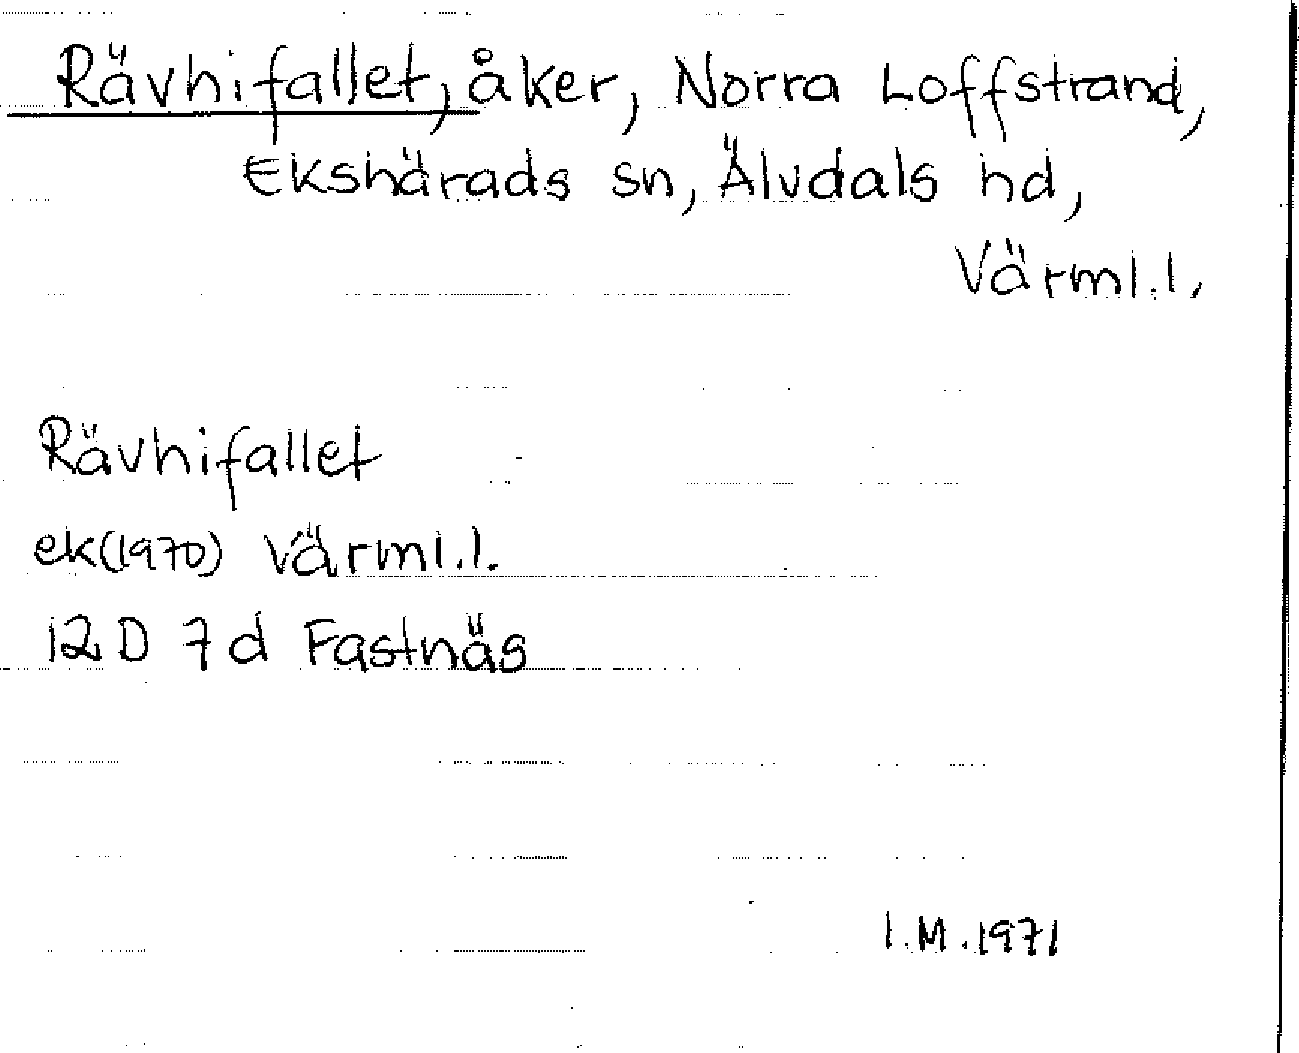 Rävhifallet, åker, Norra Loffstrand,
Ekshärads sn, Älvdals hd,
Värml.l.
Rävhifallet
ek(1970) Värml.l.
12D 7d Fastnäs
I.M.1971